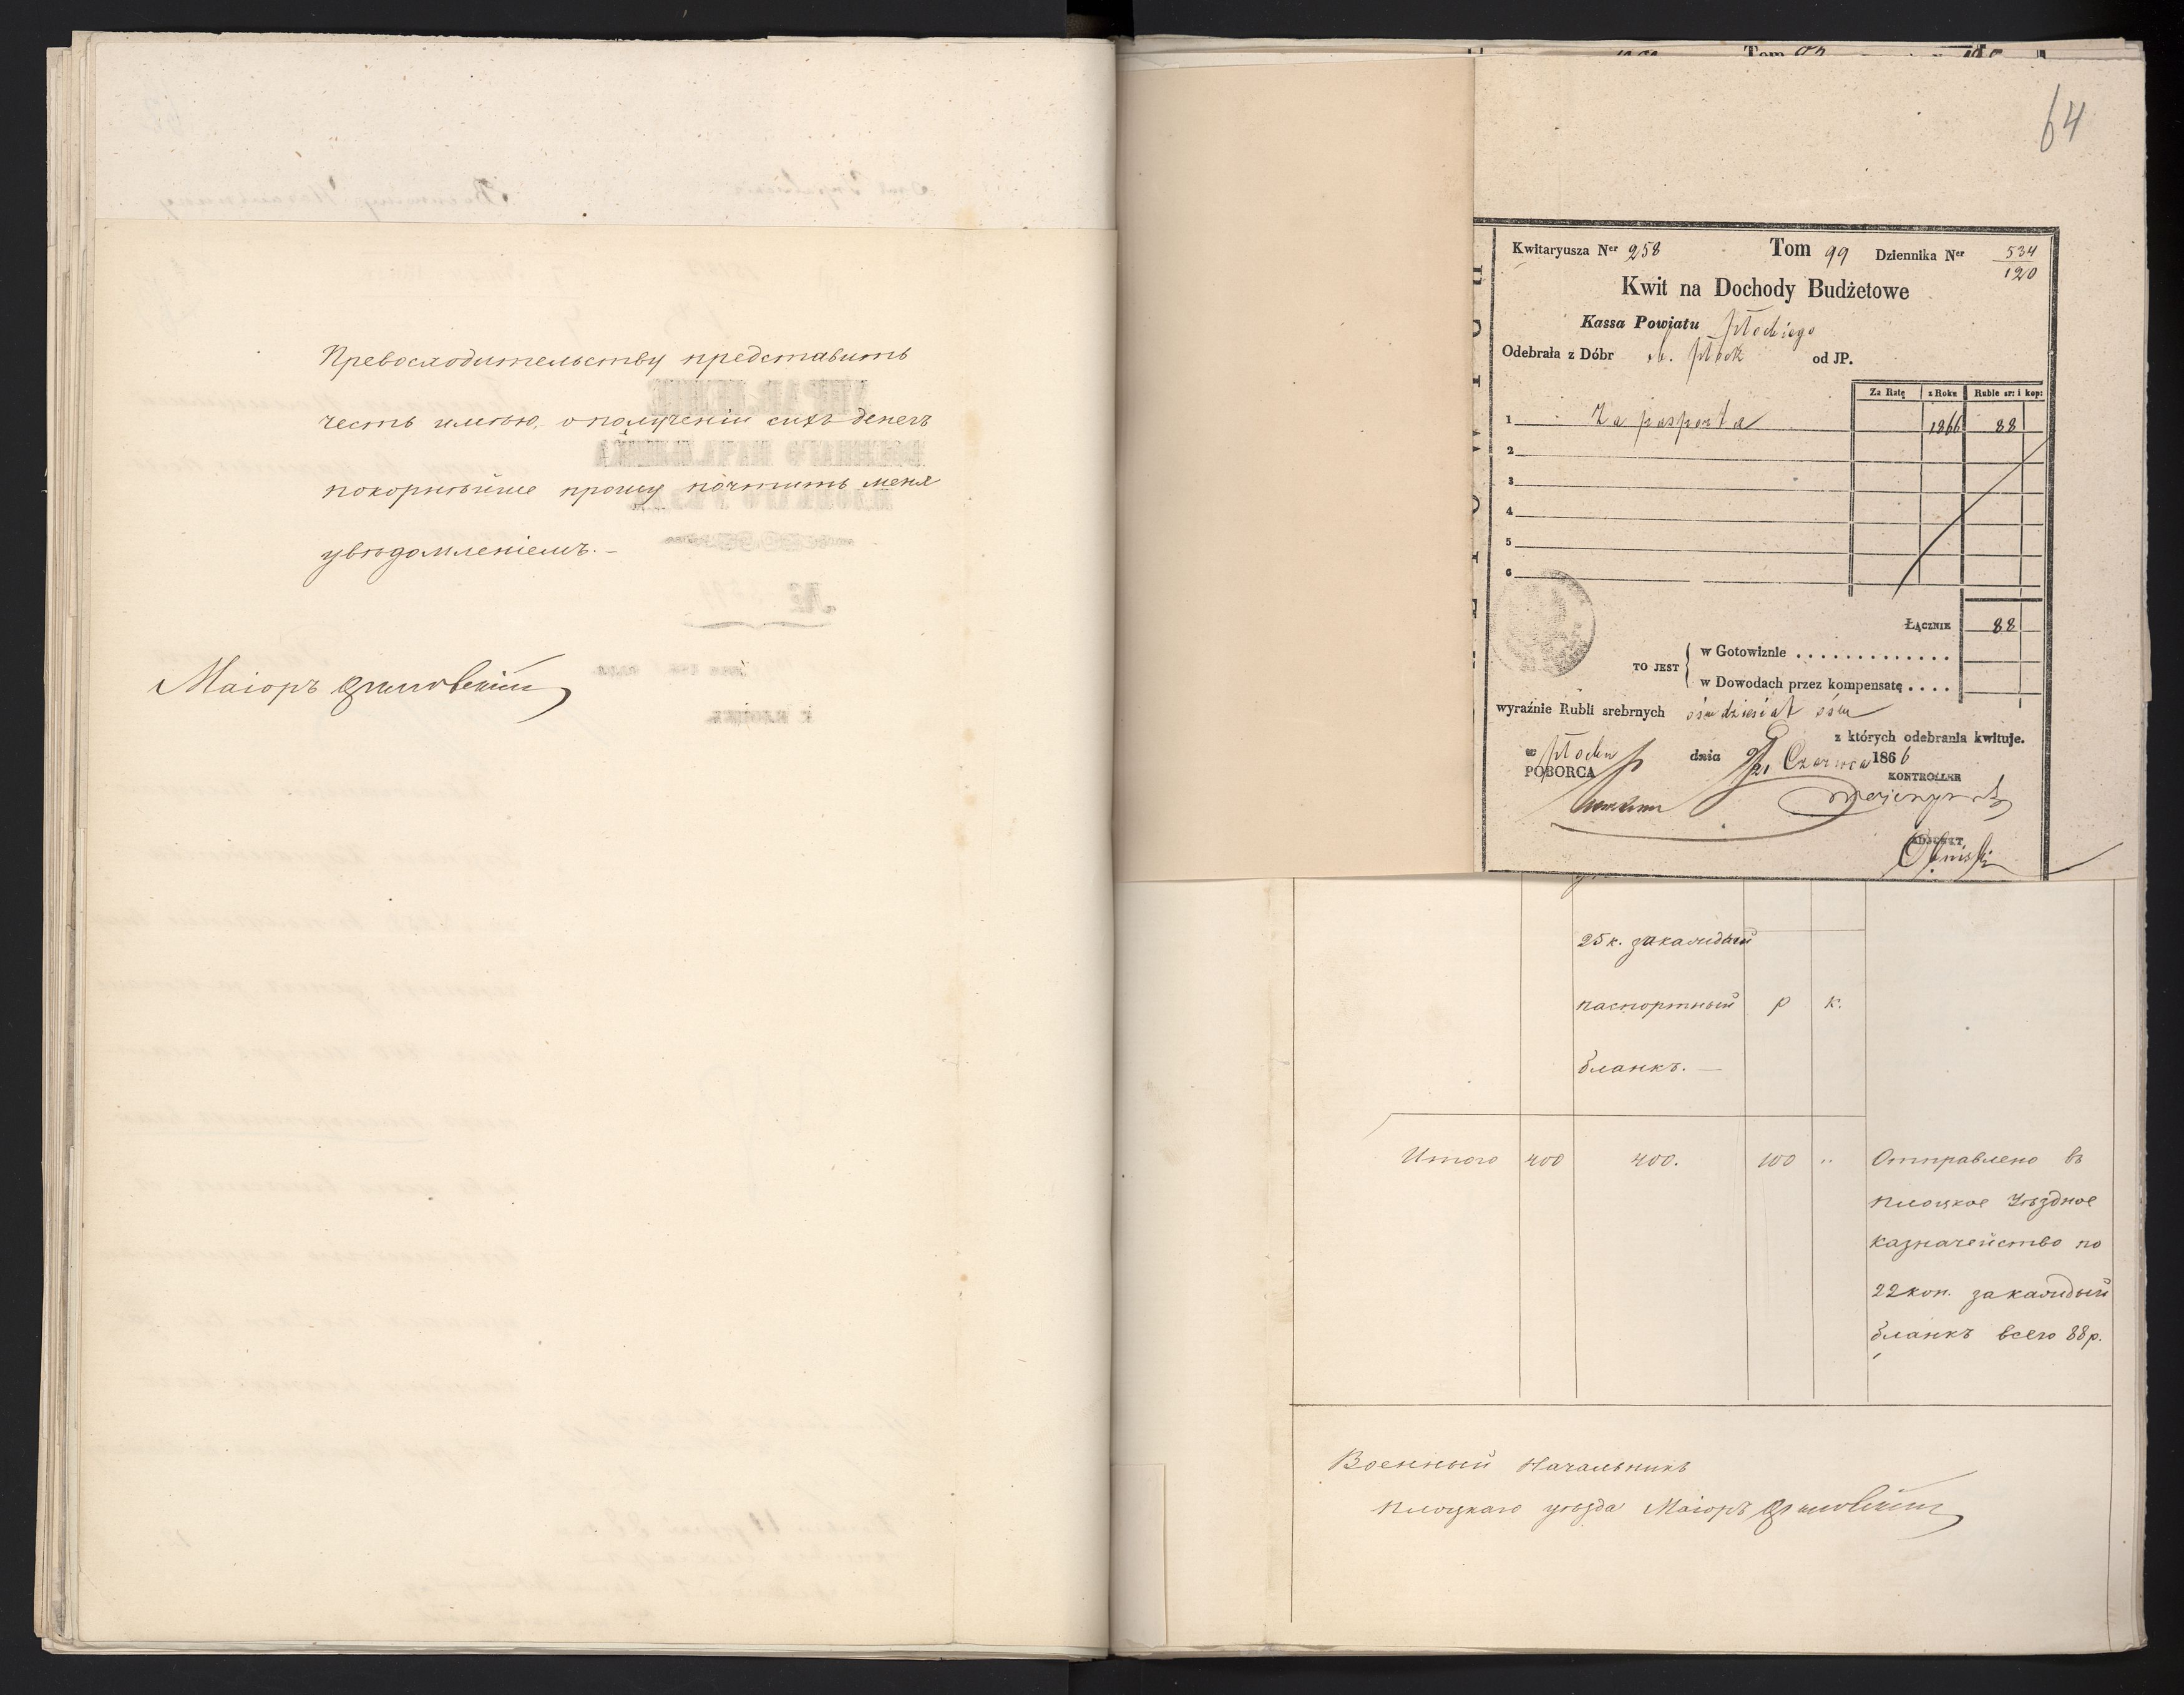 Превосходительству представить
честь имѣю, о полученіи сихъ денегъ
покорнѣйше прошу почтить меня
увѣдомленіемъ. –
Маіоръ
64
Kwitaryusza Ner 258 Tom 99 Dziennika Ner 534/120
Kwit na Dochody Budżetowe
Kassa Powiatu Płockiego
Odebrała z Dóbr Płock od JP.
Za Ratę z Roku Ruble sr: i kop:
1 Za pasporta 1866 88
2
3
4
5
6
ŁĄCZNIE 88
TO JEST
w Gotowiznie . . . . . . . . . . . . .
w Dowodach przez kompensatę . . . .
wyraźnie Rubli srebrnych ośmdziesiąt ośm
z których odebrania kwituje.
w Płocku dnia 9/21 Czerwca 1866
POBORCA KONTROLLER
ADJUNKT
25 к. за каждый
паспортный р к.
бланкъ. —
Итого 400 400. 100 „ Отправлено въ
Плоцкое Уѣздное
казначейство по
22 коп. за каждый
бланкъ всего 88 р.
Военный Начальникъ
Плоцкаго уѣзда Маіоръ